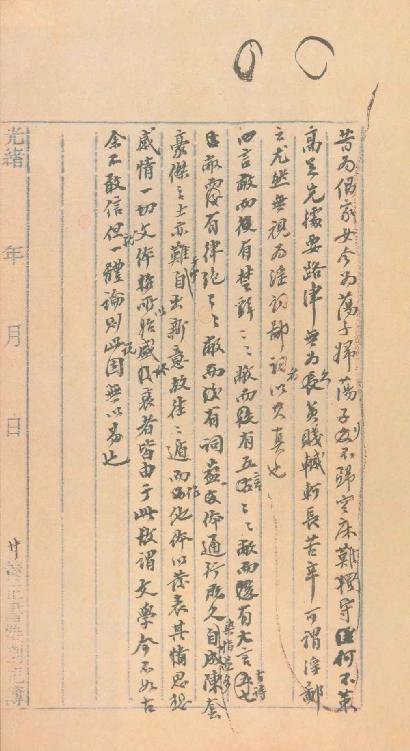 昔為倡家女今為蕩子婦蕩子行不歸空床難獨守何不策
高足先據要路津無為久貧賤轗軻長苦辛可謂淫鄙
之尤然無視為淫詞鄙詞者以其真也
四言敝而後有楚辭〻〻敝而後有五言〻〻敝而後有七言古詩
敝而後有律絕〻〻敝而後有詞蓋文体通行既久染指遂多自成陳套
豪傑之士亦難于中自出新意故往〻遁而作他体以發表其思想
感情一切文体所以始盛終衰者皆由于此故謂文學今不如古
余不敢信但就一體論則此說固無以易也
光緒 年 月 日 養正書塾劄記簿